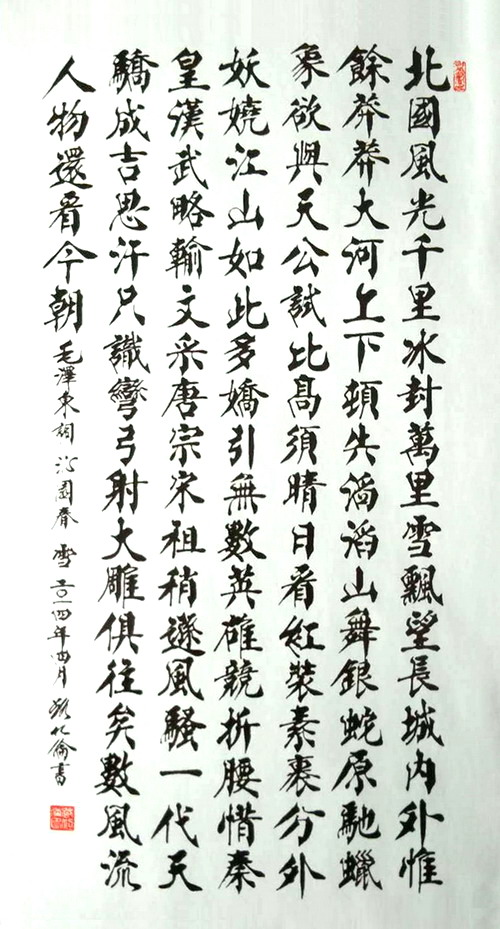 北國風光千里冰封萬里雪飄望長城内外惟
餘莽莽大河上下頓失滔滔山舞銀蛇原馳蠟
象欲與天公試比高須晴日看紅裝素裹分外
妖嬈江山如此多嬌引無數英雄競折腰惜秦
皇漢武略輸文采唐宗宋祖稍遜風騷一代天
驕成吉思汗只識彎弓射大雕俱往矣數風流
人物還看今朝 毛澤東詞 沁園春 雪 二〇一四年四月 化倫書